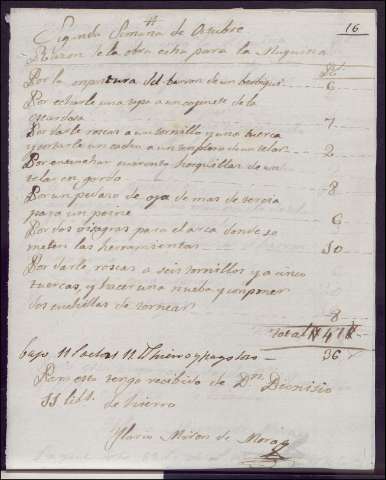 16
Segunda Semana de Octubre
Relazon de la obra echa para la Maquina
Por la conpostura del barron de un berbiqui 6
Por echarle una tapa a un copnete de la
cardosa 7
Por darle roscas a un tornillo y una tuerca
y cortarle un codon a un templero de un telar 2
Por enmanchar cuarenta horquillas de un
telar en gordo 8
Por un pedazo de oja de mas de tercia
para un peine 6
Por dos visagras para el arca donde se
meten las herramientas 10
Por darle roscas a seis tornillos y a cinco
tuercas, y hacer una nueba y conponer
dos cuchillas de tornear 8
Total 47
bajo 11 11 hierro y pago los 36
Para esto tengo recibido de Dn Dionisio
11 libs. de hierro
Ylario Miron de Mora